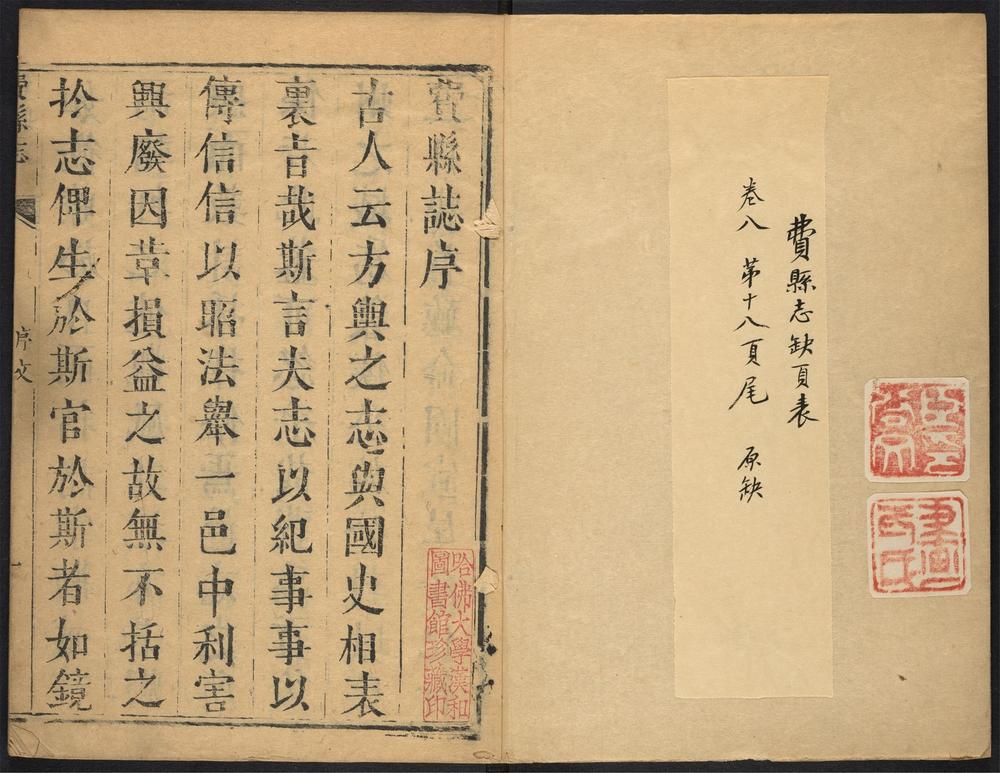 費縣志缺頁表
卷八 第十八頁尾 原缺
費縣誌序
古人云方輿之志與國史相表
裏旨哉斯言夫志以紀事事以
傳信信以昭法舉一邑中利害
興廢因革損益之故無不括之
於志俾生於斯官於斯者如鏡
哈佛大學漢和
圖書館珍藏印
費縣志
序文
一